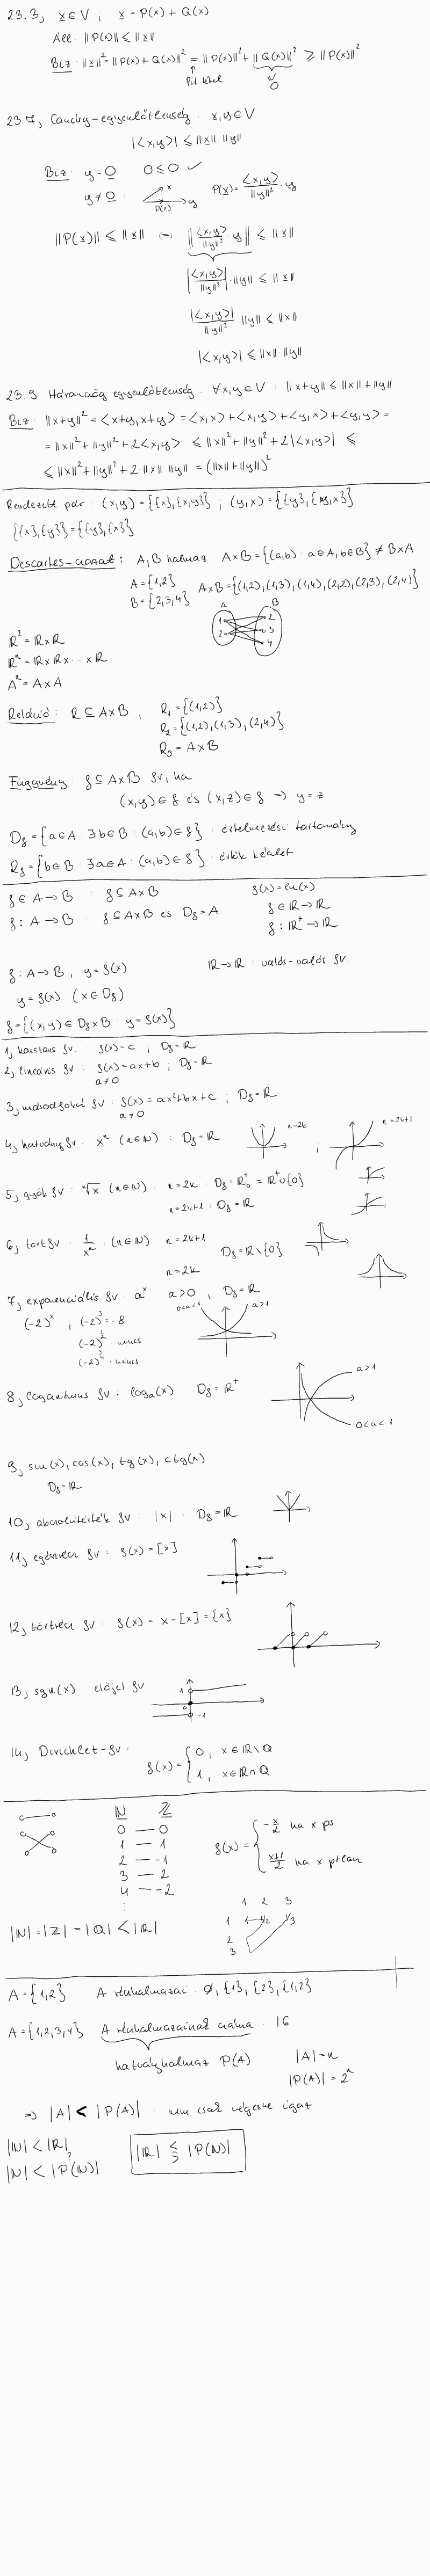 23.3, x∈V ; x = P(x) + Q(x)
Áll: ||P(x)|| ≤ ||x||
Biz: ||x||² = ||P(x) + Q(x)||² = ||P(x)||² + ||Q(x)||² ≥ ||P(x)||²
Pit. tétel
0
23.7, Cauchy-egyenlőtlenség: x,y∈V
|<x,y>| ≤ ||x||·||y||
Biz: y=0 : 0≤0 ✓
y≠0 : x y P(x) P(x) = <x,y>/||y||² · y
||P(x)|| ≤ ||x|| ||<x,y>/||y||² · y|| ≤ ||x||
|<x,y>/||y||²|·||y|| ≤ ||x||
|<x,y>|/||y||² ||y|| ≤ ||x||
|<x,y>| ≤ ||x||·||y||
23.9 Háromszög egyenlőtlenség: ∀x,y∈V : ||x+y|| ≤ ||x||+||y||
Biz: ||x+y||² = <x+y,x+y> = <x,x> + <x,y> + <y,x> + <y,y> =
= ||x||² + ||y||² + 2<x,y> ≤ ||x||² + ||y||² + 2|<x,y>| ≤
≤ ||x||² + ||y||² + 2·||x||·||y|| = (||x||+||y||)²
Rendezett pár: (x,y) = {{x},{x,y}} ; (y,x) = {{y},{y,x}}
{{x},{y}} = {{y},{x}}
Descartes-szorzat: A,B halmaz A×B = {(a,b) : a∈A, b∈B} ≠ B×A
A={1,2}
B={2,3,4} A×B = {(1,2),(1,3),(1,4),(2,2),(2,3),(2,4)}
A B
1 2
2 3
4
ℝ² = ℝ×ℝ
ℝⁿ = ℝ×ℝ×...×ℝ
A² = A×A
Reláció: R⊆A×B ; R₁ = {(1,2)}
R₂ = {(1,2),(1,3),(2,4)}
R₃ = A×B
Függvény: f⊆A×B fv, ha
(x,y)∈f és (x,z)∈f ⇒ y=z
Df = {a∈A : ∃b∈B : (a,b)∈f} : értelmezési tartomány
Rf = {b∈B : ∃a∈A : (a,b)∈f} : érték készlet
f∈A→B : f⊆A×B f(x)=ln(x)
f: A→B : f⊆A×B és Df=A f∈ℝ→ℝ
f: ℝ⁺→ℝ
f: A→B, y=f(x) ℝ→ℝ : valós-valós fv.
y=f(x) (x∈Df)
f={(x,y)∈Df×B : y=f(x)}
1, konstans fv: f(x)=c ; Df=ℝ
2, lineáris fv: f(x)=ax+b ; Df=ℝ
a≠0
3, másodfokú fv: f(x)=ax²+bx+c ; Df=ℝ
a≠0
4, hatvány fv: xⁿ (n∈ℕ) : Df=ℝ n=2k ; n=2k+1
5, gyök fv: ⁿ√x (n∈ℕ) n=2k : Df=ℝ₀⁺ = ℝ⁺∪{0}
n=2k+1 : Df=ℝ
6, tört fv: 1/xⁿ (n∈ℕ) n=2k+1
Df=ℝ\{0}
n=2k
7, exponenciális fv: aˣ a>0, Df=ℝ
0<a<1 a>1
(-2)ˣ, (-2)³=-8
(-2)^½ nincs
(-2)^¾ nincs
8, logaritmus fv: logₐ(x) Df=ℝ⁺
a>1
0<a<1
9, sin(x), cos(x), tg(x), ctg(x)
Df=ℝ
10, abszolútérték fv: |x| : Df=ℝ
11, egészrész fv: f(x)=[x]
12, törtrész fv: f(x) = x-[x] = {x}
13, sgn(x) : előjel fv
1
0
-1
14, Dirichlet-fv:
f(x)={0, x∈ℝ\ℚ
1, x∈ℝ∩ℚ
ℕ ℤ
0 — 0
1 — 1
2 — -1
3 — 2
4 — -2
⋮
f(x)={-x/2 ha x ps
(x+1)/2 ha x ptlan
1 2 3
1 1 1/2 1/3
2
3
|ℕ|=|ℤ|=|ℚ|<|ℝ|
A={1,2} A részhalmazai: ∅, {1}, {2}, {1,2}
A={1,2,3,4} A részhalmazainak száma: 16
hatványhalmaz P(A) |A|=n
|P(A)|=2ⁿ
⇒ |A| < |P(A)| : nem csak végesre igaz
|ℕ|<|ℝ|,
|ℕ|<|P(ℕ)|
|ℝ| ≤ > |P(ℕ)|
?